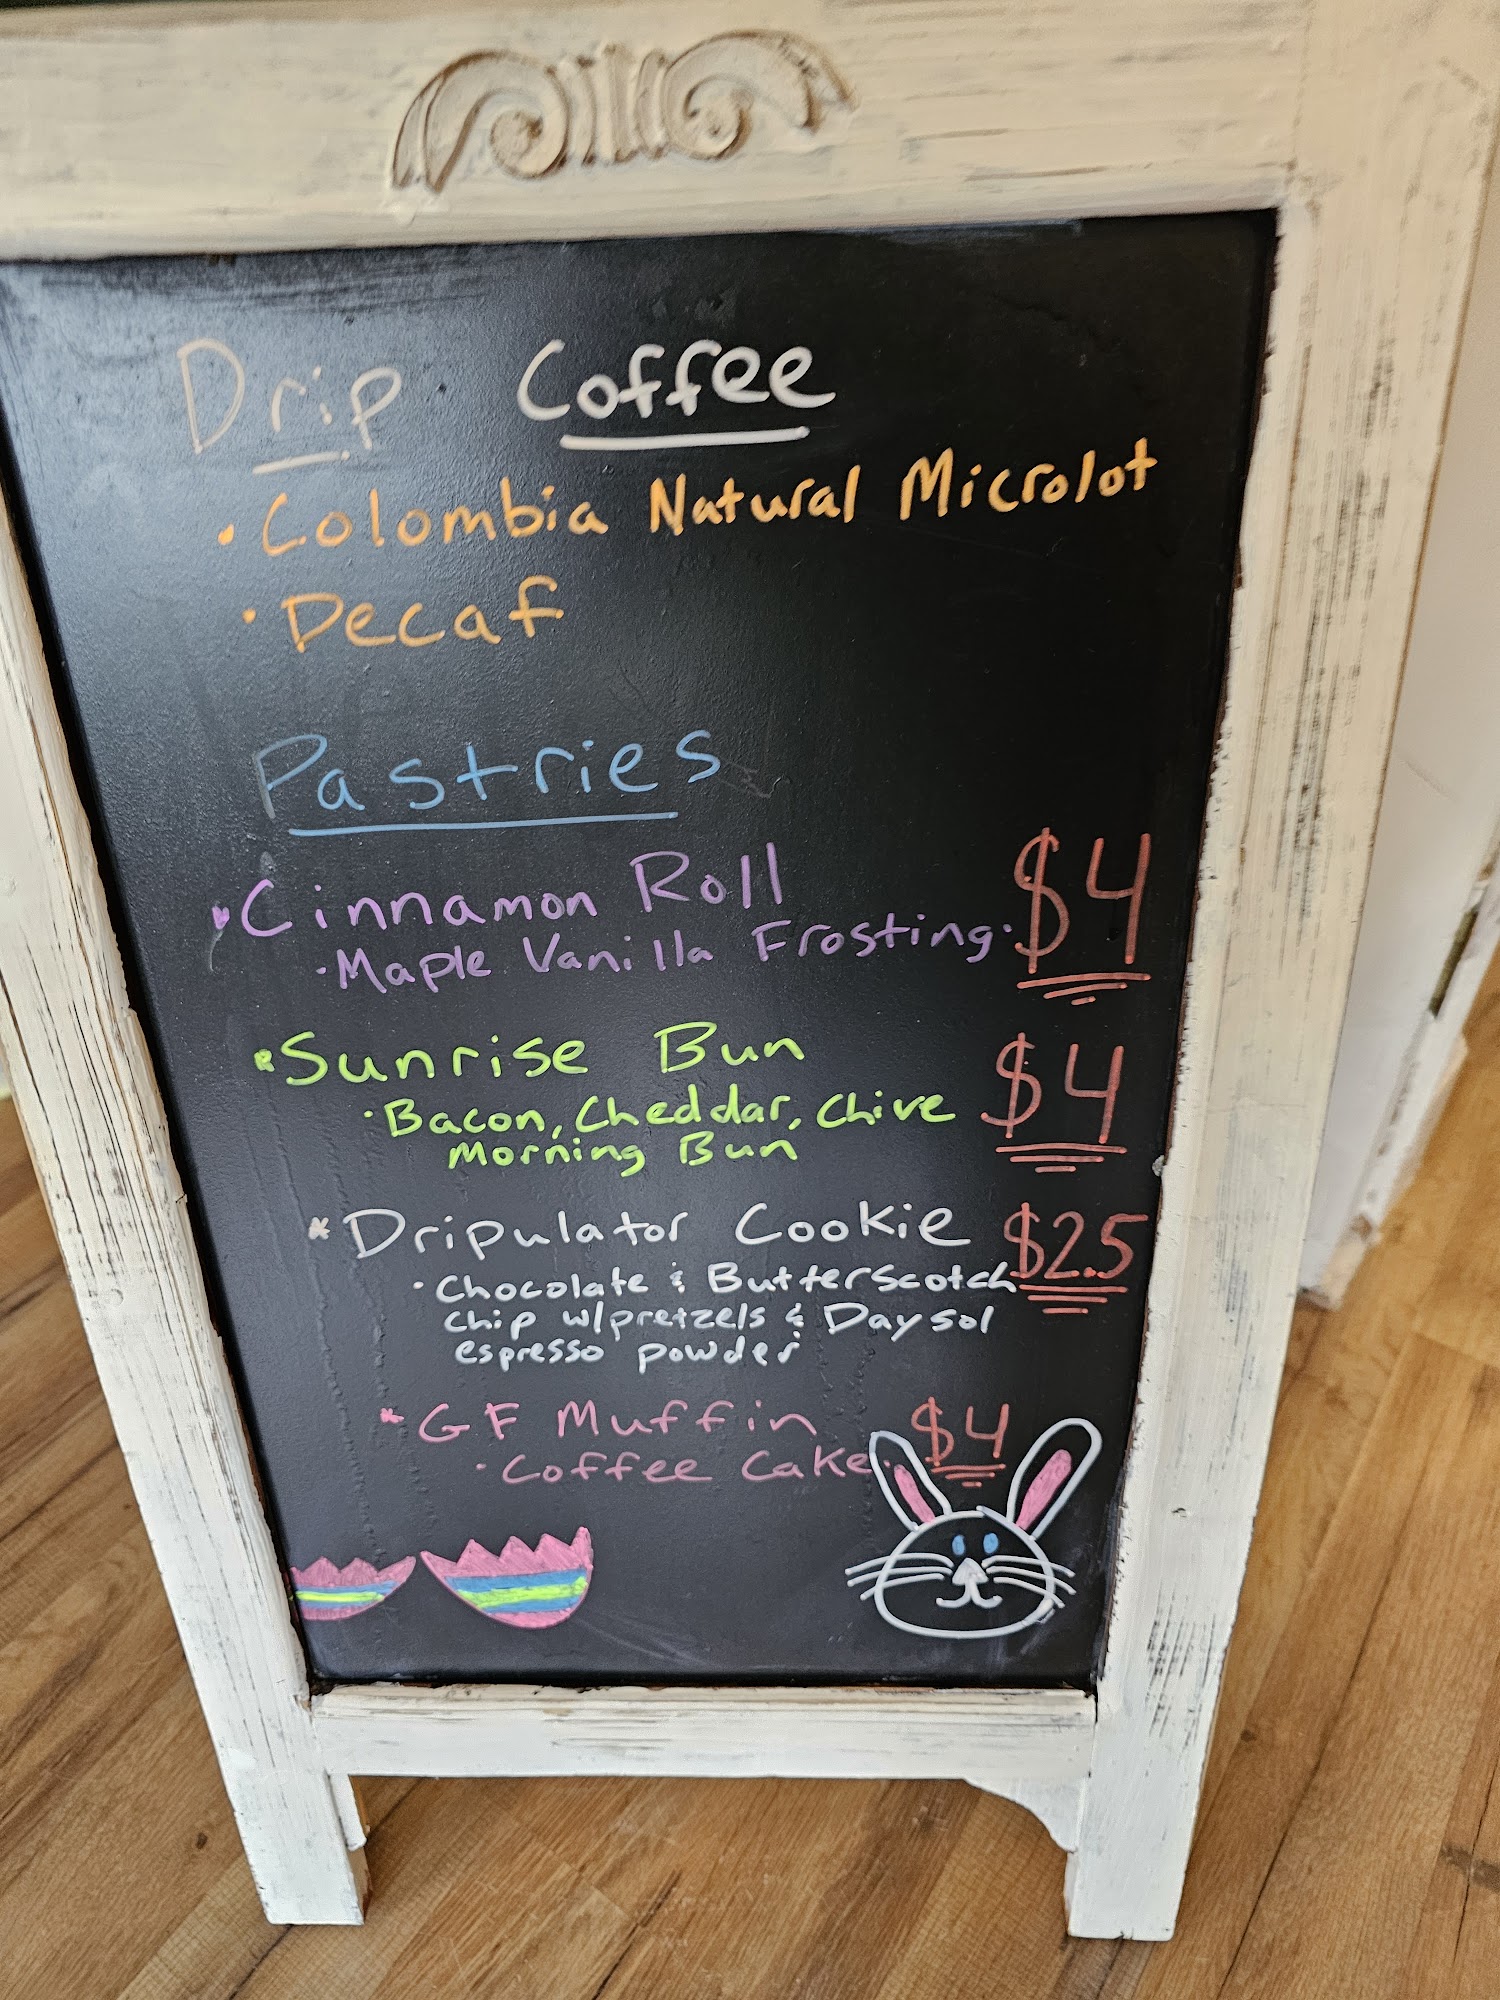 Drip Coffee
• Colombia Natural Microlot
• Decaf
Pastries
• Cinnamon Roll $4
• Maple Vanilla Frosting •
• Sunrise Bun $4
• Bacon, Cheddar, Chive
Morning Bun
* Dripulator Cookie $2.5
• Chocolate & Butterscotch
chip w/pretzels & Daysol
espresso powder
* GF Muffin $4
• Coffee Cake •